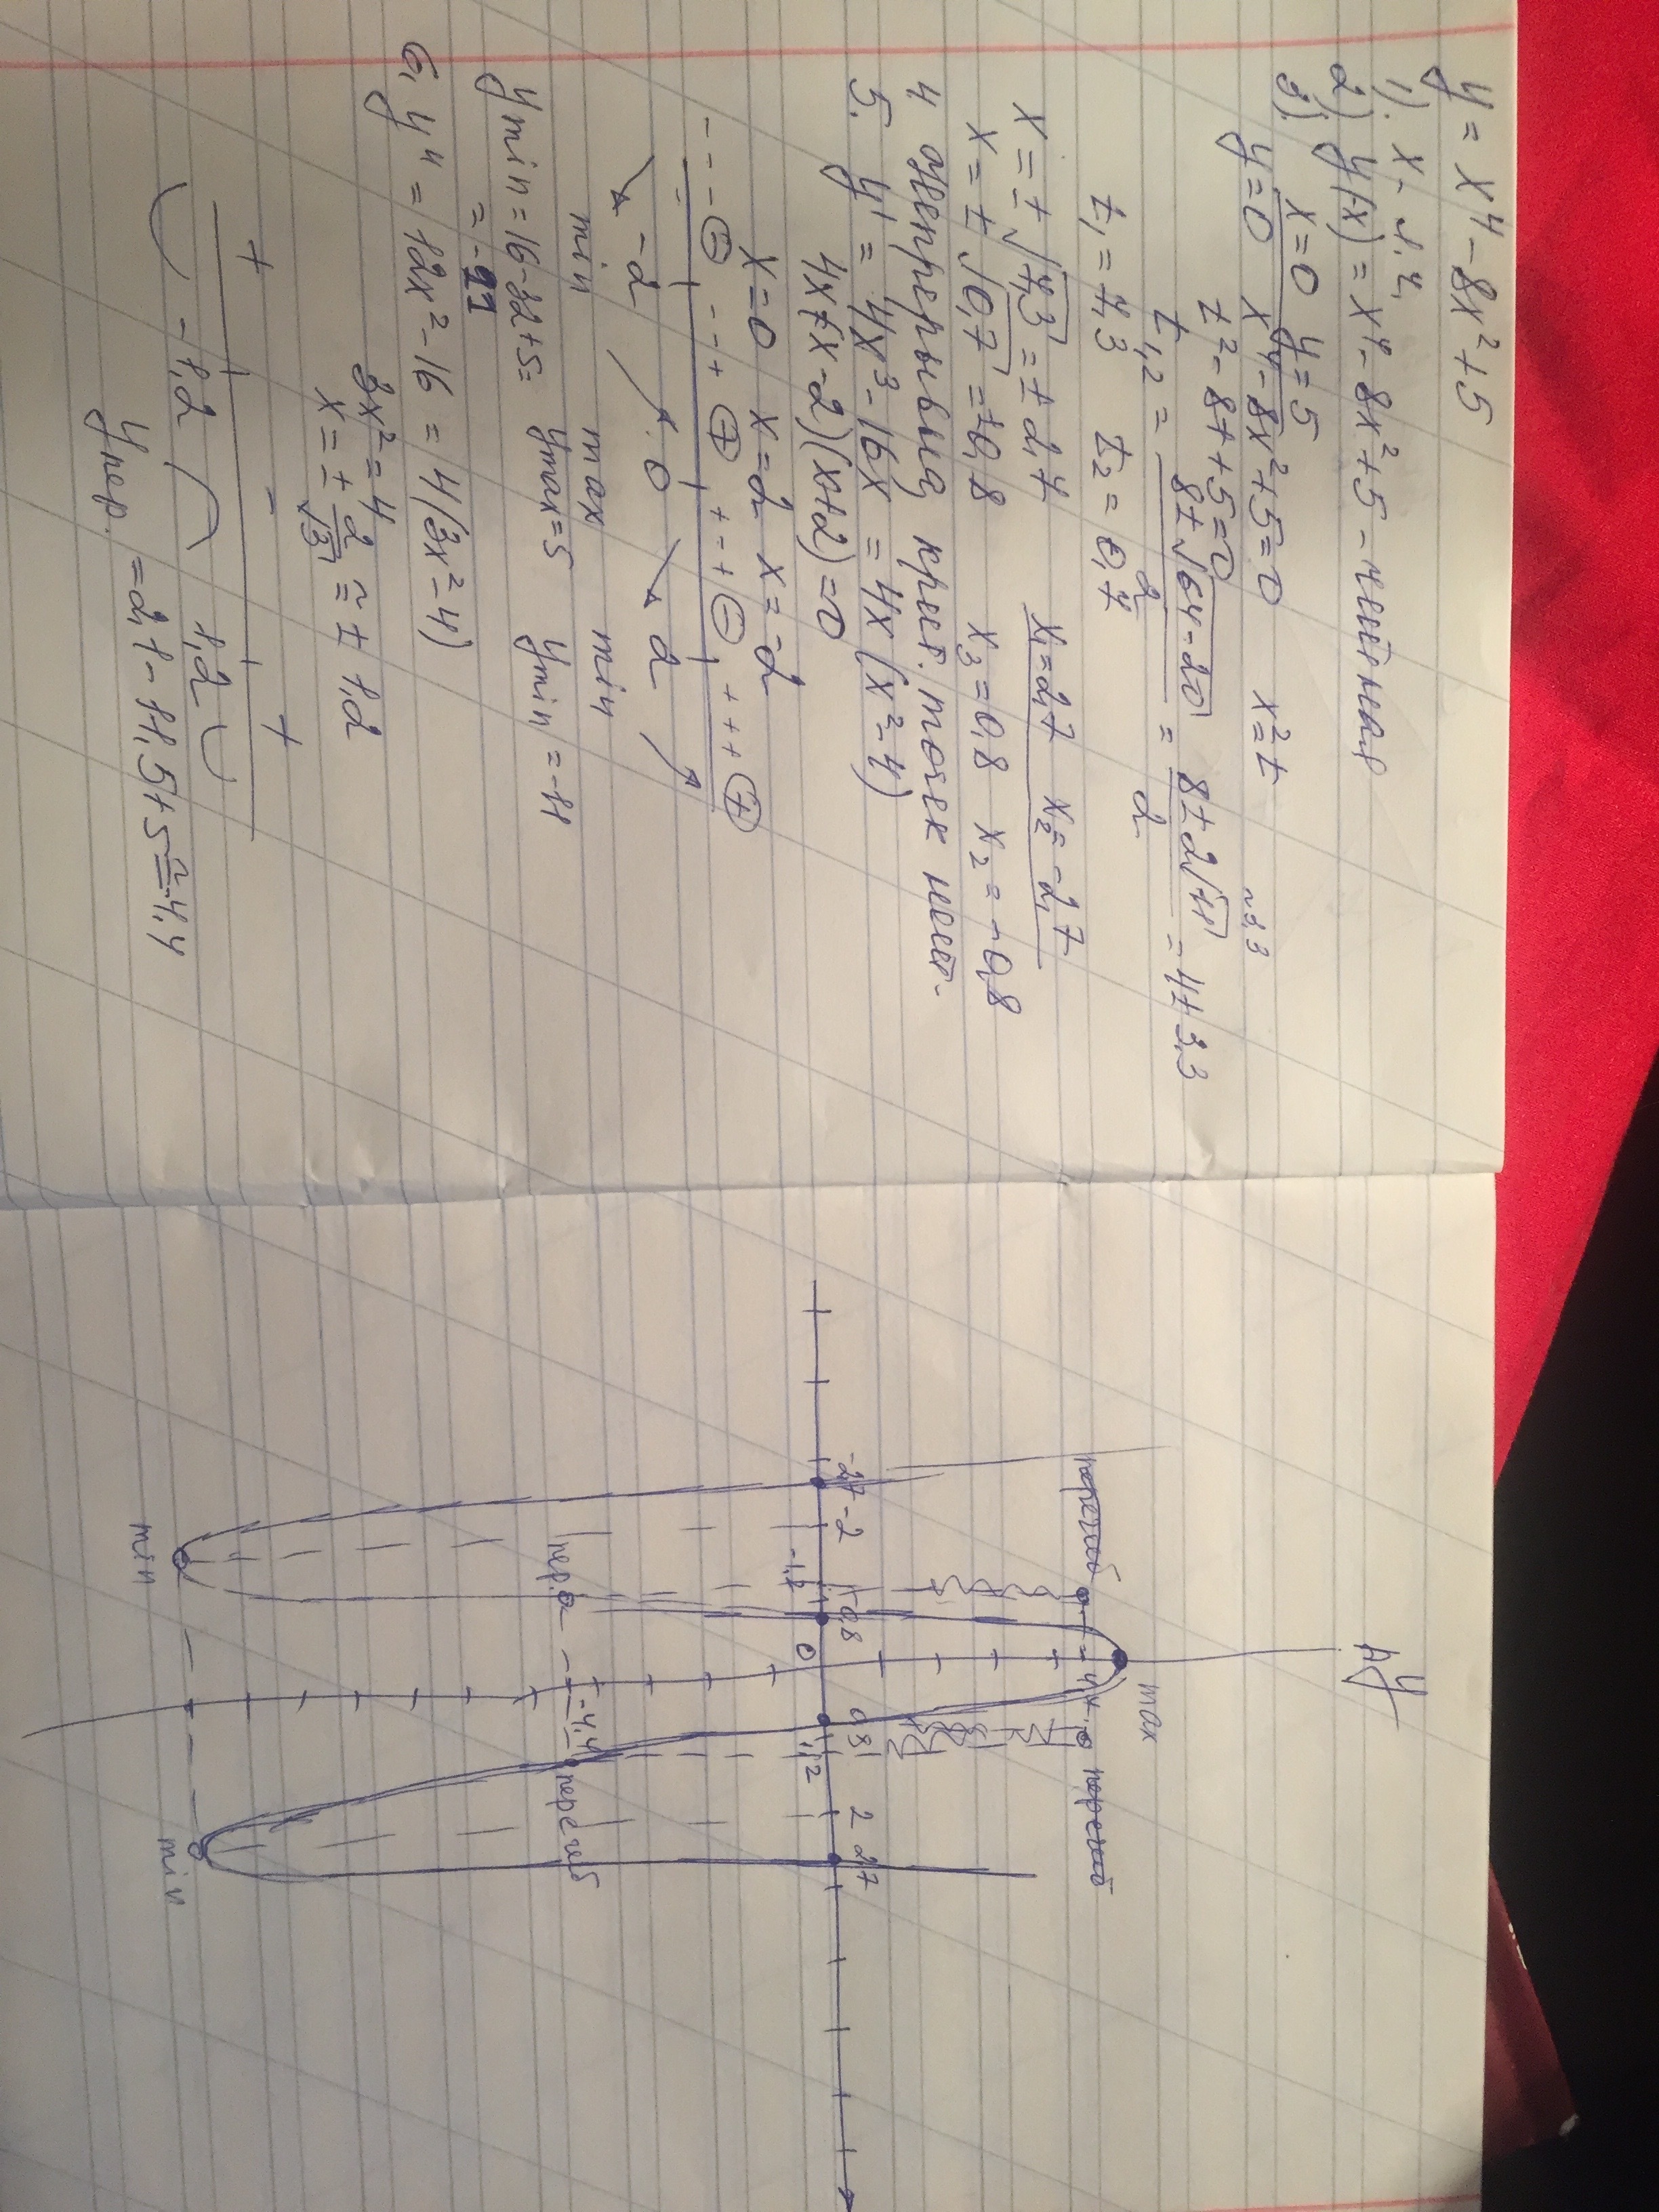 y = x⁴ - 8x² + 5
1). x-
2) y(-x) = x⁴ - 8x² + 5 - четная
3). x=0 y=5
y=0 x⁴ - 8x² + 5 = 0 x² = t
t² - 8t + 5 = 0 ≈3,3
t₁,₂ = (8 ± √(64-20))/2 = (8 ± 2√11)/2 = 4 ± 3,3
t₁ = 7,3 t₂ = 0,7
x = ± √7,3 = ± 2,7 x₁ = 2,7 x₂ = -2,7
x = ± √0,7 = ±0,8 x₃ = 0,8 x₂ = -0,8
4 точек нет.
5. y' = 4x³ - 16x = 4x(x² - 4)
4x(x-2)(x+2) = 0
x=0 x=2 x=-2
- - - ⊖ - - + ⊕ + - + ⊖ + + + ⊕
-2 0 2
min max min
y min = 16 - 32 + 5 = y max = 5 y min = -11
= -11
6. y" = 12x² - 16 = 4(3x² - 4)
3x² = 4
x = ± 2/√3 ≈ ± 1,2
+ - +
-1,2 1,2
y пер. = 2,1 - 11,5 + 5 ≈ -4,4
y
max
перегиб -4,4 перегиб
-2,7 -2 -1,2 -0,8 0 0,8 1,2 2 2,7
пер. -4,4 перегиб
min min